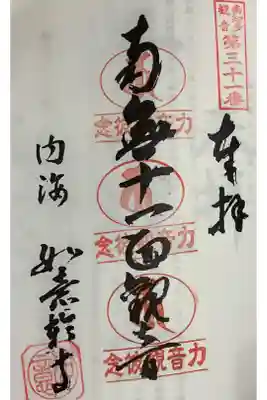 南知多
観音
第三十一番
奉拝
南無十一面觀音
念彼觀音力
念彼觀音力
念彼觀音力
内海
如意輪寺